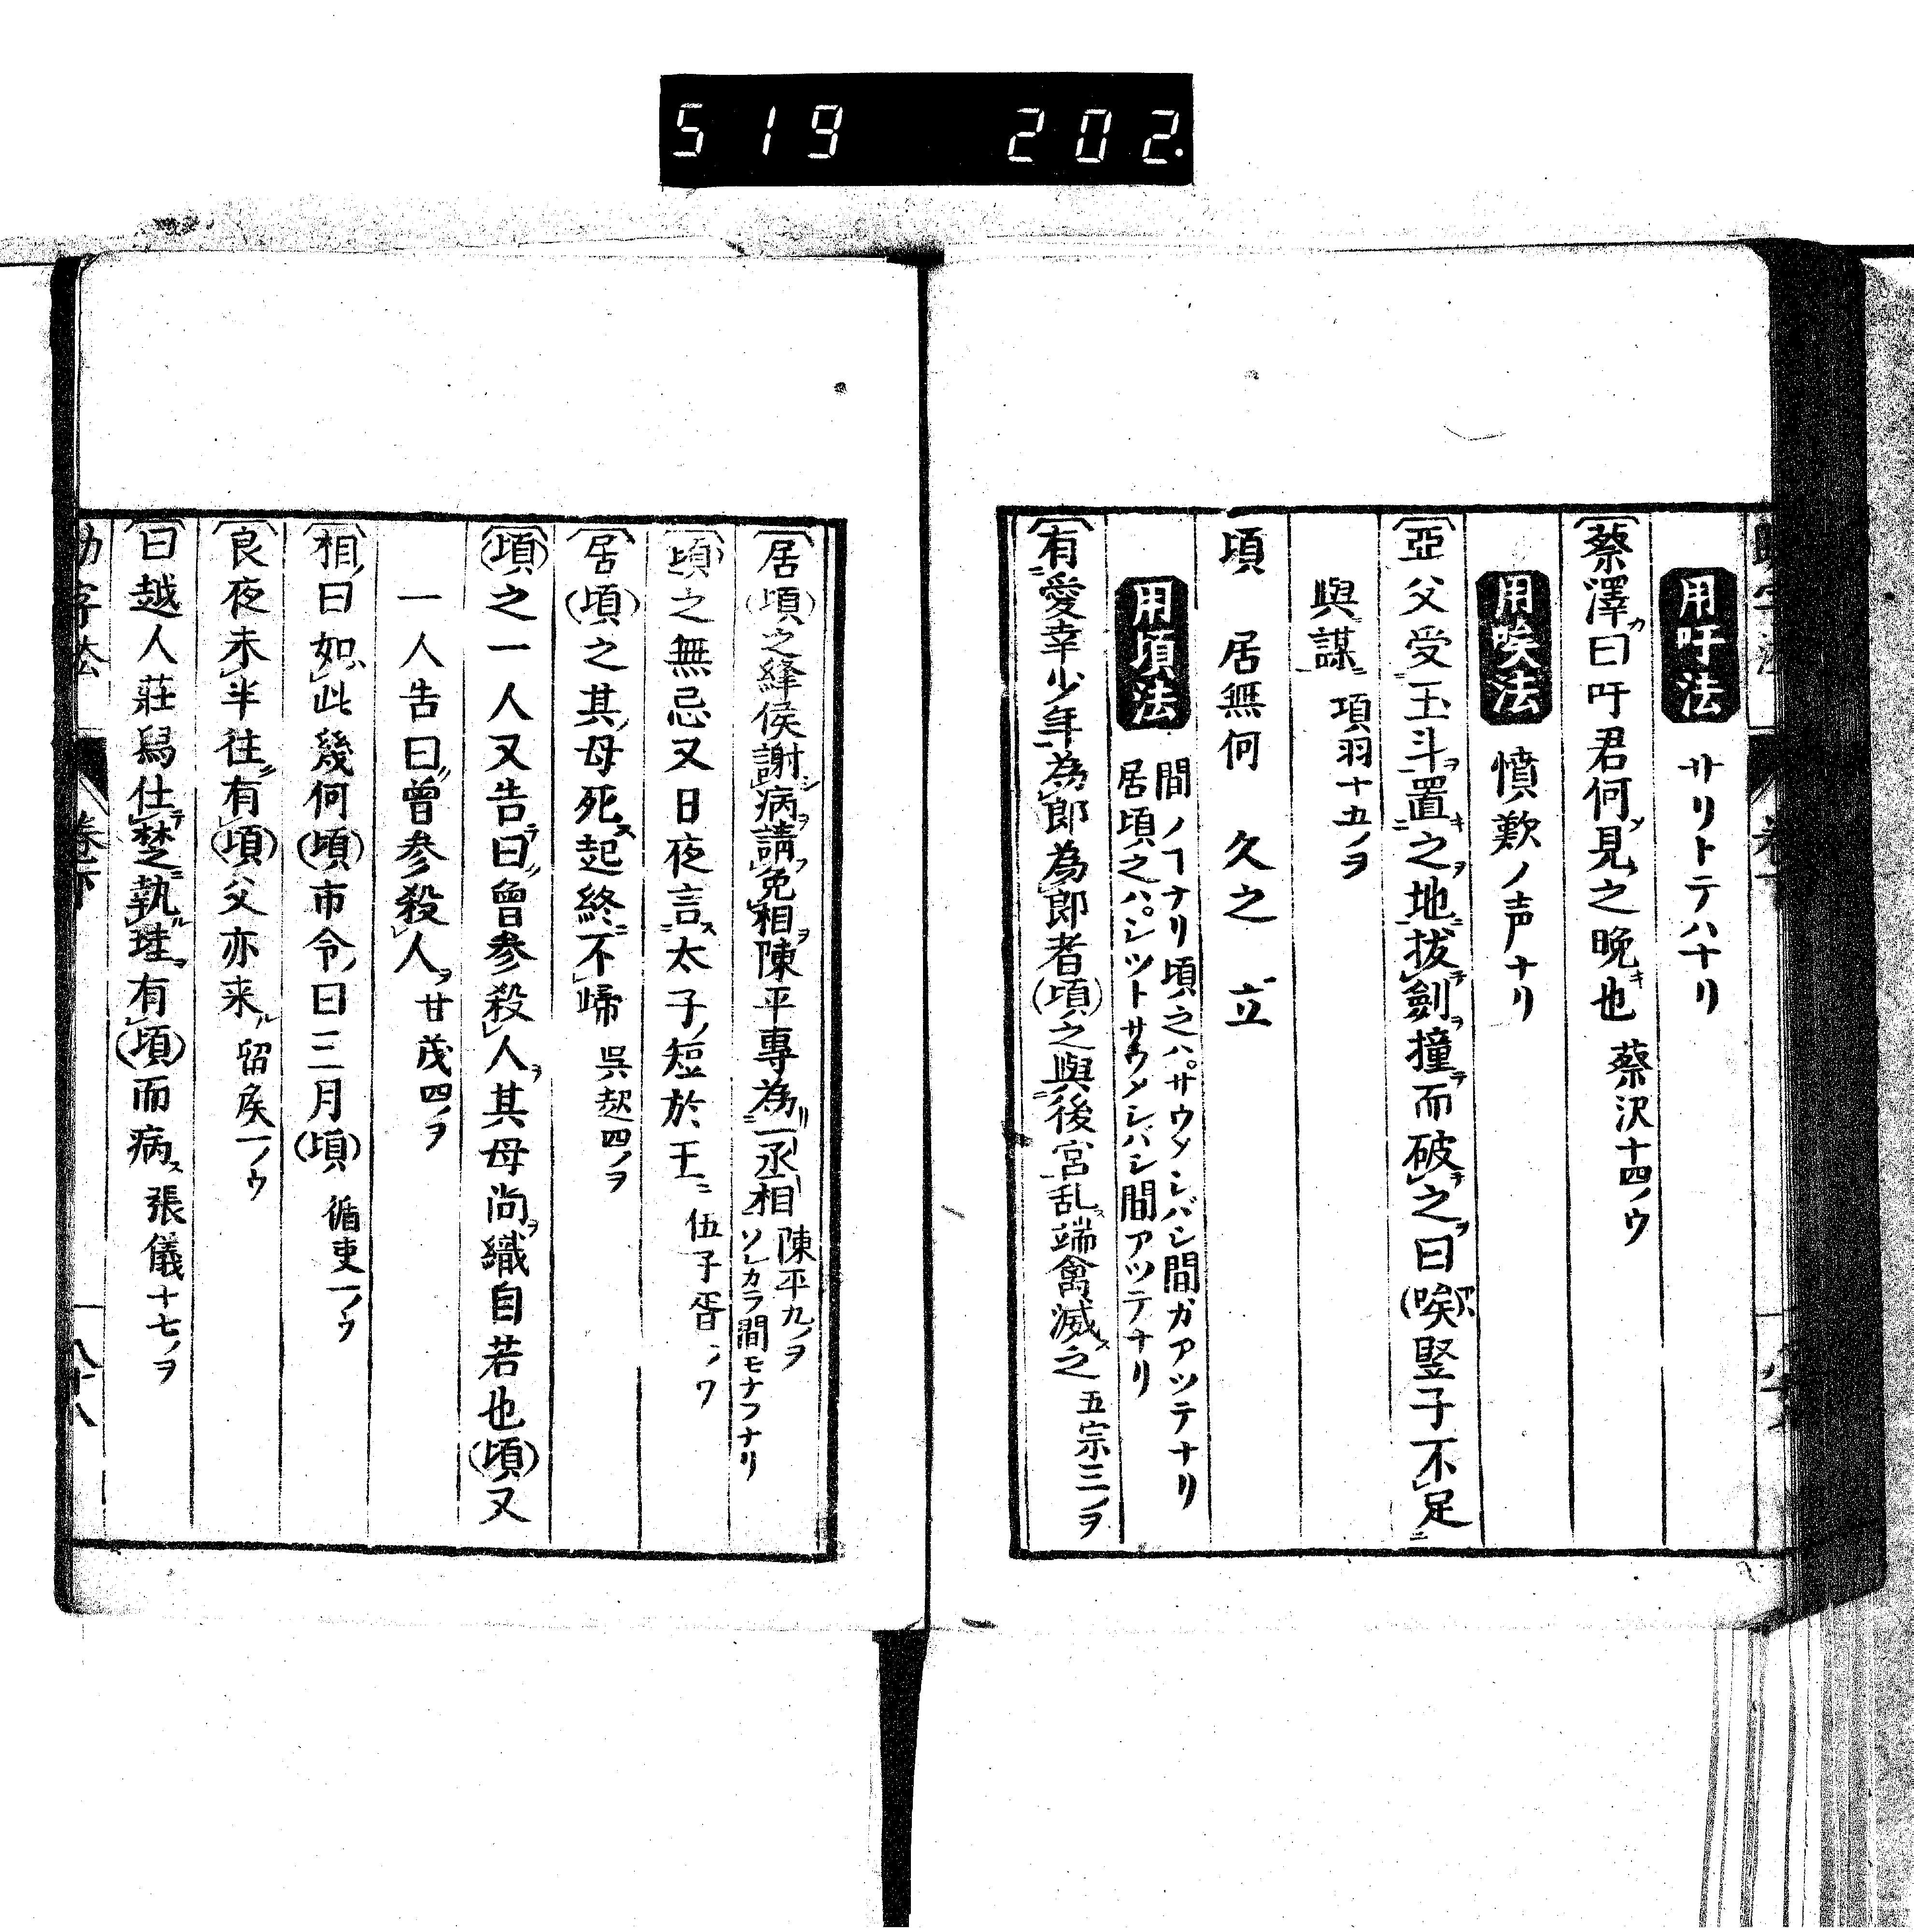 519 202.
用吁法 サリトテハナリ
蔡澤カ曰吁君何メ見之晩キ也 蔡沢十四ノウ
用唉法 憤歎ノ声ナリ
亞父受玉斗ヲ置キ之ヲ地ニ拔テ劍ヲ撞テ而破テ之ヲ曰(唉)竪子不足
與謀ニ 項羽十五ノヲ
頃 居無何 久之 立
用頃法 間ノヿナリ頃之ハ。サウメシバシ間ガアツテナリ
居頃之ハ。シツトサウメシバシ間アツテナリ
有愛幸少年為郎為郎者(頃)之與後宮乱ス端禽滅ス之 五宗三ノヲ
居(頃)之絳侯謝シ病ヲ請フ免ヲ相陳平專為一丞相 陳平九ノヲ
ソレカラ間モナフナリ
(頃)之無忌又日夜言ス太子ノ短於王ニ 伍子胥
居(頃)之其ノ母死ス起終ニ不歸 呉起四ノヲ
(頃)之一人又告テ曰曾参殺人ヲ其母尚ヲ織自若也(頃)又
一人告曰曾参殺人ヲ 甘茂四ノヲ
相曰如此幾何(頃)市令曰三月(頃) 循吏一ノウ
良夜未半往有(頃)父亦来ル 留侯一ノウ
曰越人莊舄仕テ楚ニ執ル珪ヲ有(頃)而病ス 張儀十七ノヲ
助字法 卷下 八十八